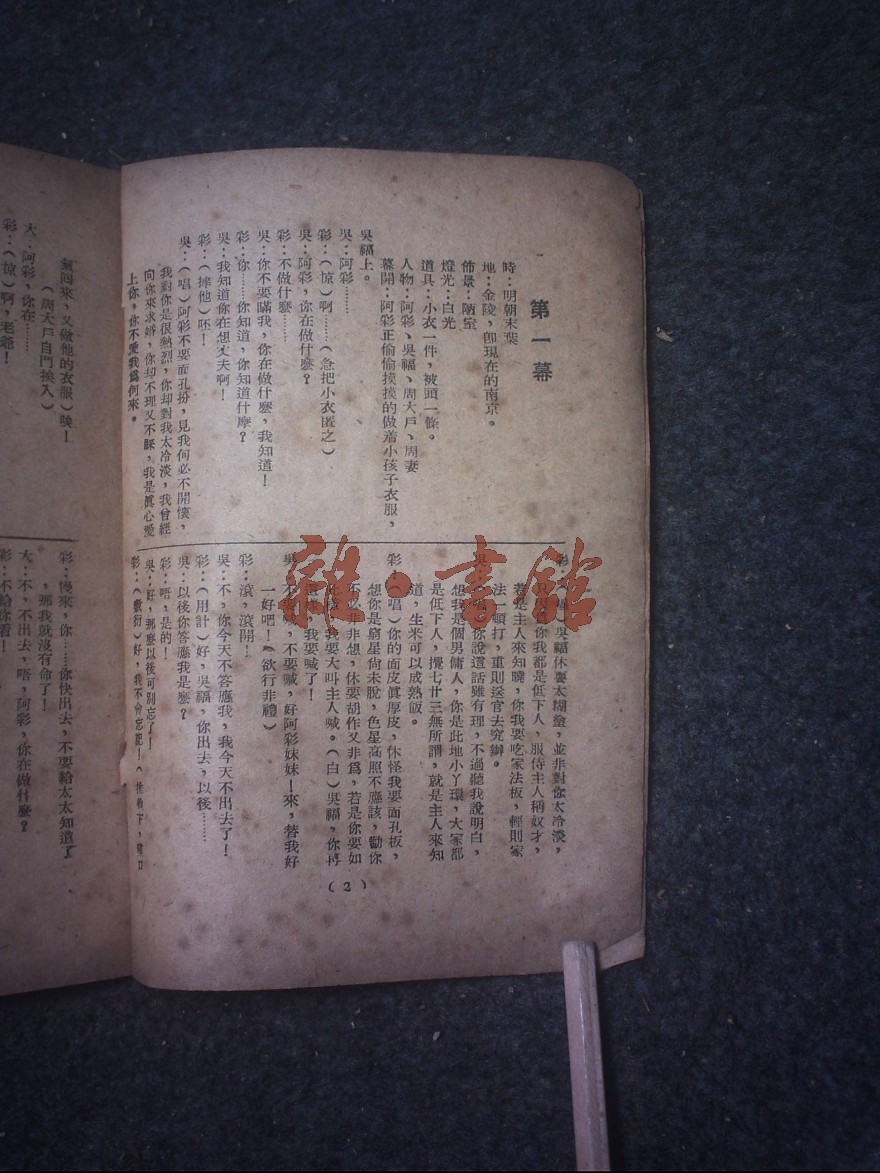 第一幕
時：明朝末葉
地：金陵，卽現在的南京。
佈景：陋室
燈光：白光
道具：小衣一件，被頭一條。
人物：阿彩、吳福、周大戶、周妻
幕開：阿彩正偷偷摸摸的做着小孩子衣服，
吳福上。
吳：阿彩………
彩：（惊）啊……（急把小衣匿之）
吳：阿彩，你在做什麽？
彩：不做什麽………
吳：你不要瞞我，你在做什麽，我知道！
彩：你……你知道，你知道什麽？
吳：我知道你在想丈夫啊！
彩：（摔他）呸！
吳：（唱）阿彩不要面孔扮，見我何必不開懷，
我對你是很熱烈，你却對我太冷淡，我曾經
向你來求婚，你却不理又不睬，我是眞心愛
上你，你不愛我爲何來。
彩：吳福休要太糊塗，並非對你太冷淡，
你我都是低下人，服侍主人稱奴才，
若是主人來知曉，你我要吃家法板，輕則家
法一頓打，重則送官去究辦。
吳：唱你說這話雖有理，不過聽我說明白，
想我是個男傭人，你是此地小丫環，大家都
是低下人，攪七廿三無所謂，就是主人來知
道，生米可以成熟飯。
彩：（唱）你的面皮眞厚皮，休怪我要面孔板，
想你是窮星尙未脫，色星高照不應該，勸你
不必非想，休要胡作又非爲，若是你要如
此做，我要大叫主人喊。（白）吳福，你再
這樣，我要喊了！
吳：不要喊，不要喊，好阿彩妹妹！來，替我好
一好吧！（欲行非禮）
彩：滾，滾開！
吳：不，你今天不答應我，我今天不出去了！
彩：（用計）好，吳福，你出去，以後………
吳：以後你答應我是麽？
彩：唔，是的！
吳：好，那麽以後可別忘了！
彩：（敷衍）好，我不會忘記！
（2）
氣回來，又做他的衣服）唉！
（周大戶自門挨入）
大：阿彩，你在………
彩：（惊）啊，老爺！
彩：慢來，你……你快出去，不要給太太知道了
，那我就沒有命了！
大：不，不出去，唔，阿彩，你在做什麽？
彩：不給你看！
雜·書館